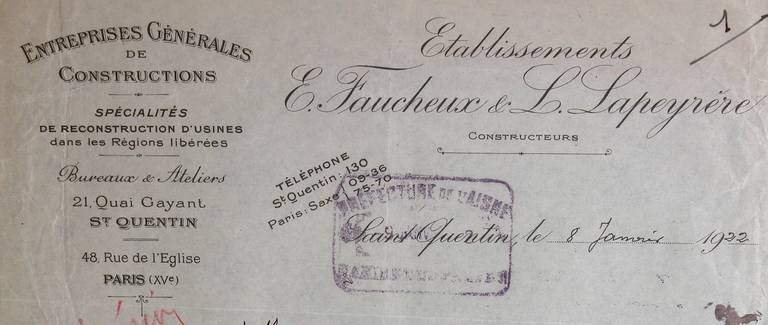 ENTREPRISES GÉNÉRALES
DE
CONSTRUCTIONS
SPÉCIALITÉS
DE RECONSTRUCTION D'USINES
dans les Régions libérées
Bureaux & Ateliers
21, Quai Gayant
ST QUENTIN
48, Rue de l'Eglise
PARIS (XVe)
1
Etablissements
E. Faucheux & L. Lapeyrére
CONSTRUCTEURS
TÉLÉPHONE
St Quentin: 130
Paris: Saxe 09-36
75-70
PRÉFECTURE DE L'AISNE
Saint Quentin, le 8 Janvier 1922